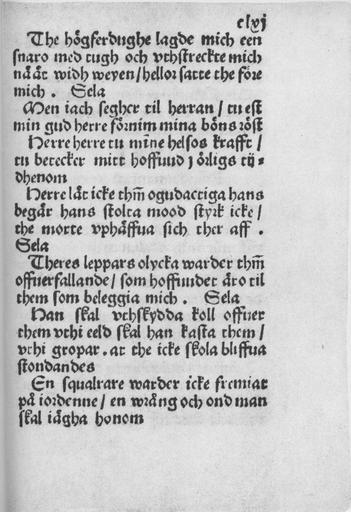 clxj
The högferdughe lagde mich een
snaro med tugh och vthstreckte mich
näät widh weyen / hellor satte the före
mich . Sela
Men iach segher til herran / tu est
min gud herre förnim mina böns röst
Herre herre tu mīne helsos krafft /
tu betecker mitt hoffuud j örligs tij=
dhenom
Herre lät icke thm̄ ogudactiga hans
begär hans stolta mood styrk icke /
the motte vphäffua sich ther aff .
Sela
Theres leppars olycka warder thm̄
offuerfallande / som hoffuudet äro til
them som beleggia mich . Sela
Han skal vthskydda koll offuer
them vthi eeld skal han kasta them /
vthi gropar . at the icke skola bliffua
stondandes
En squalrare warder icke fremiat
på iordenne / en wräng och ond man
skal iägha honom